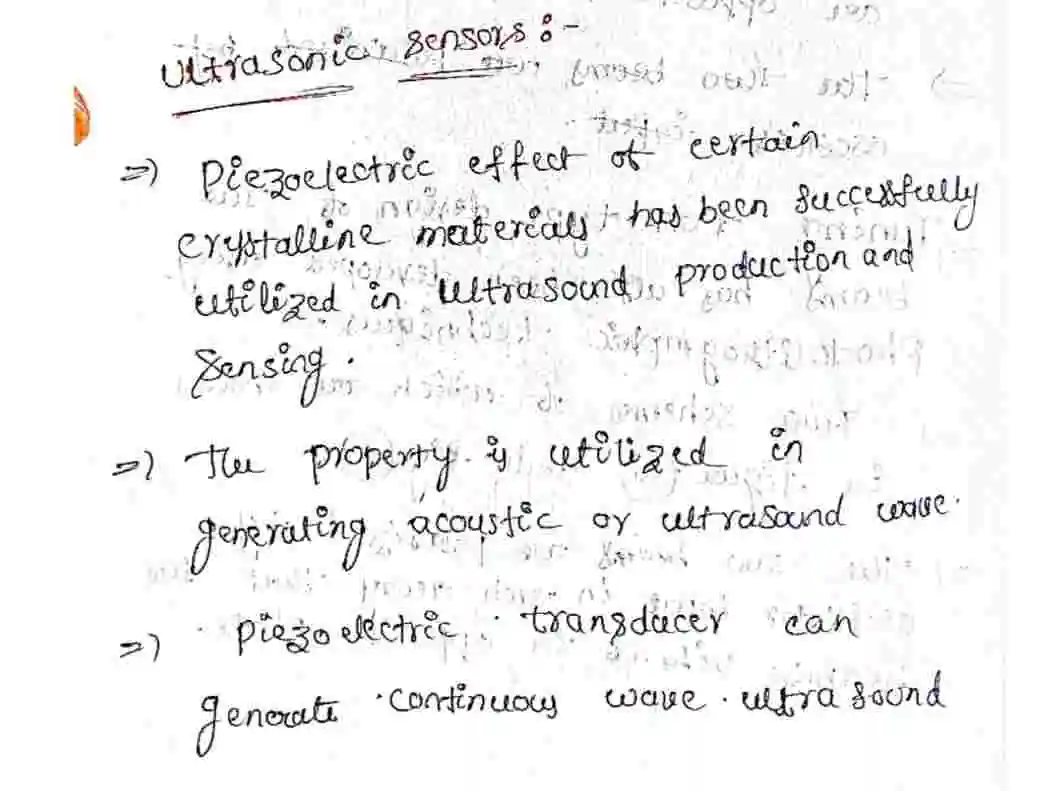 Ultrasonic sensors :-
=> Piezoelectric effect of certain
crystalline materials has been successfully
utilized in ultrasound production and
sensing.
=> The property is utilized in
generating acoustic or ultrasound wave.
=> piezoelectric transducer can
generate continuous wave ultrasound